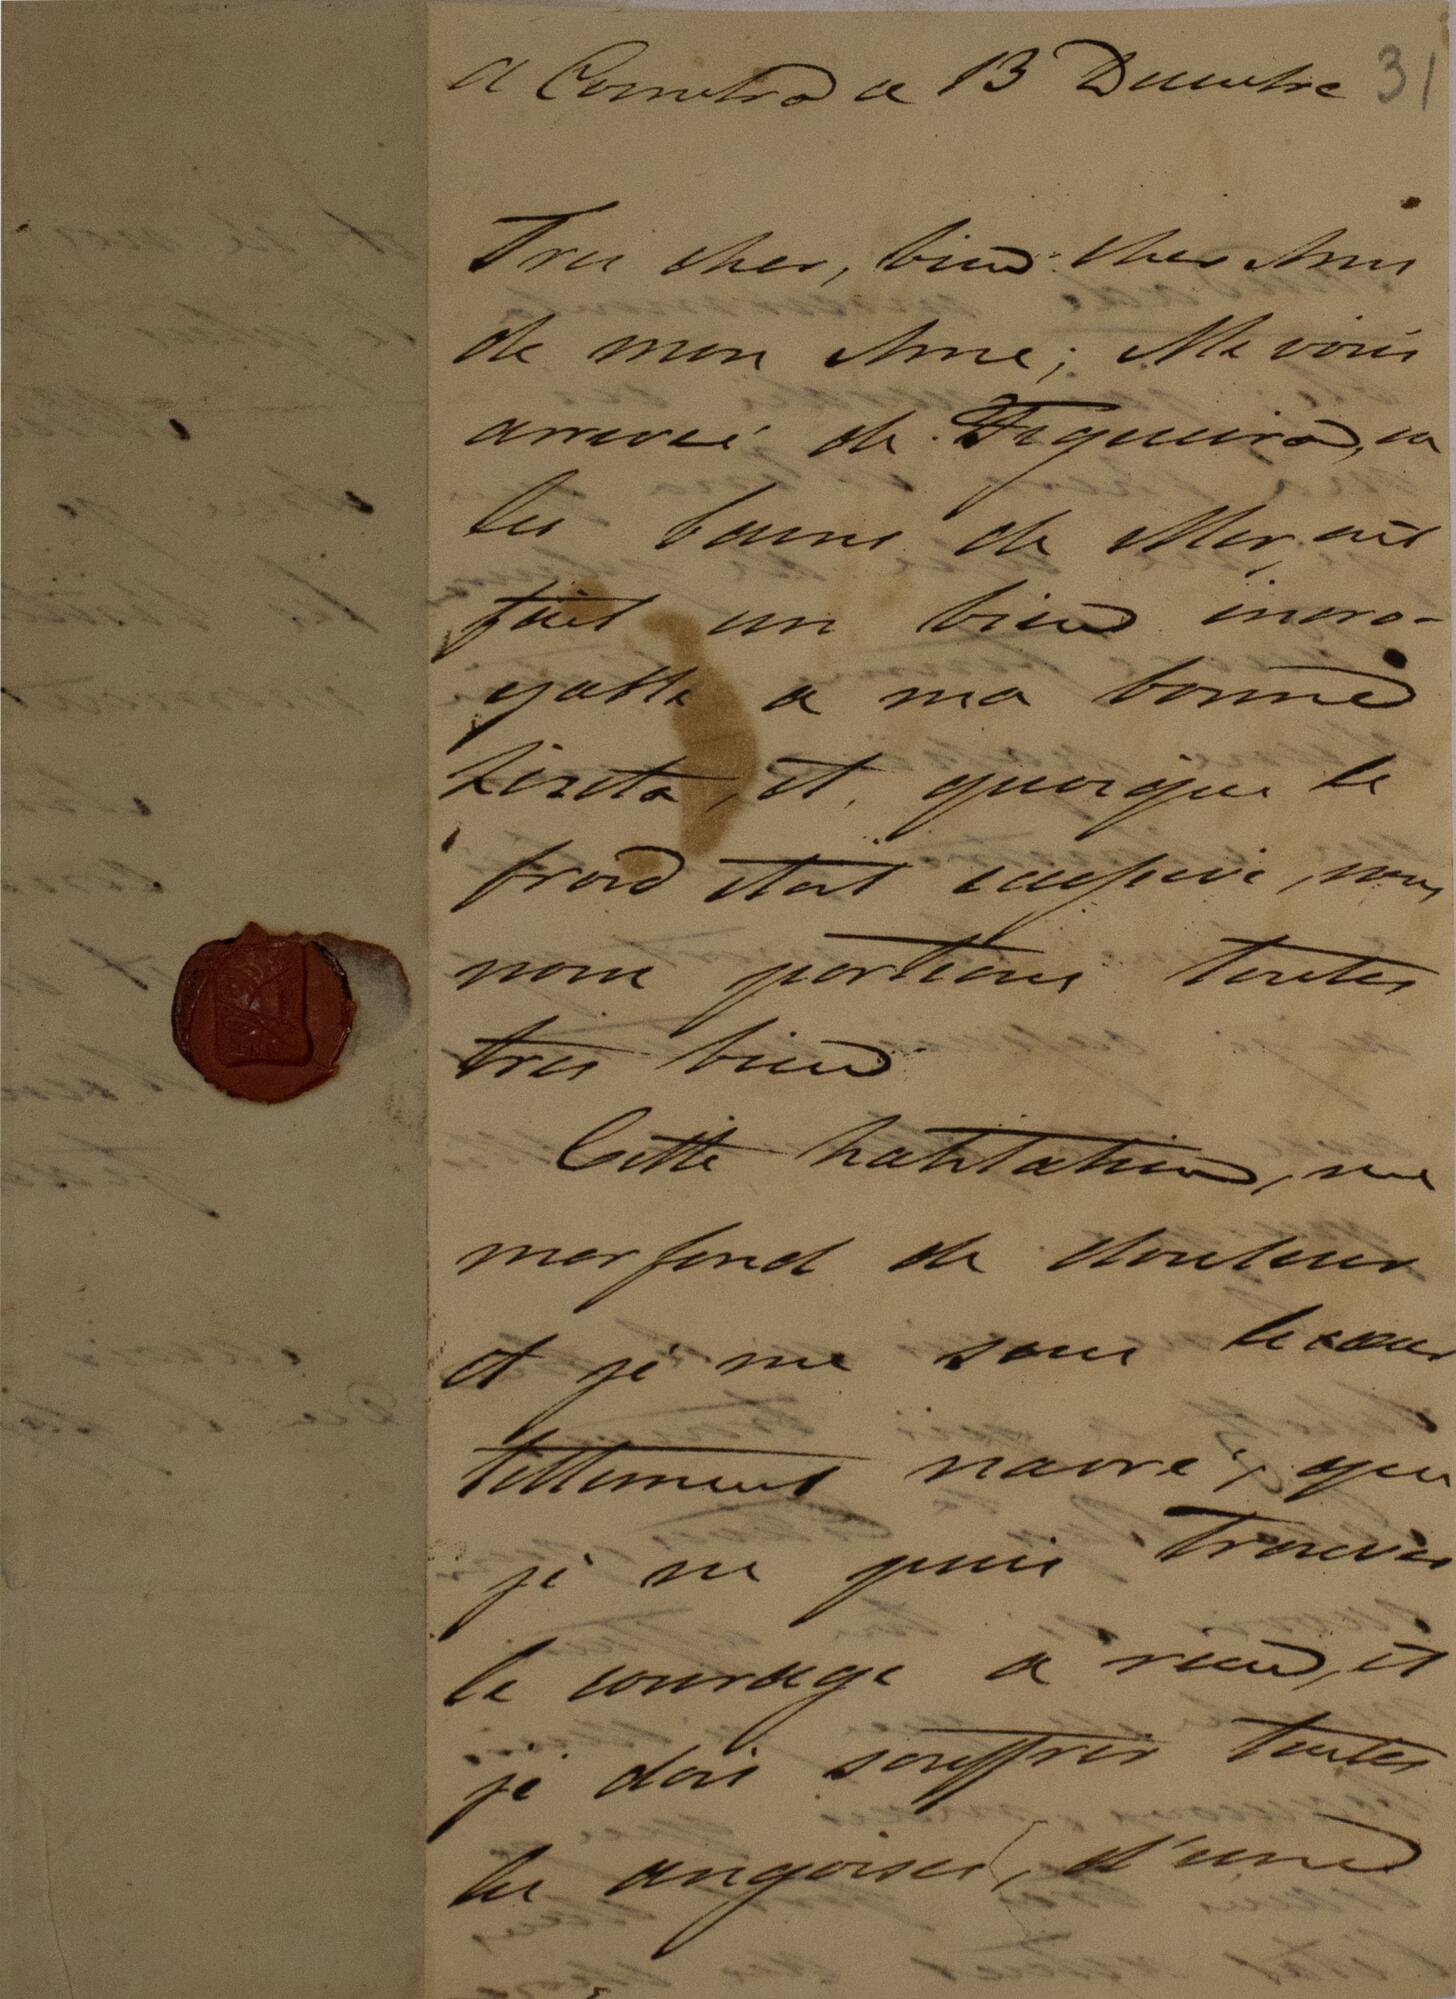 a Coimbra ce 13 Decembre 31
Tres cher, bien cher Ami
de mon Ame; Me voici
arrivée de Figueira, ou
les bains de Mer, ont
fait un bien incro-
yable a ma bonne
et quoique le
froid etait excessive, nous
nous portions toutes
tres bien
Cette habitation, me
morfond de douleur
et je me sens le cœur
tellement navré, que
je ne puis trouver
le courage a rien, et
je dois souffrir toutes
les angoises, d'une